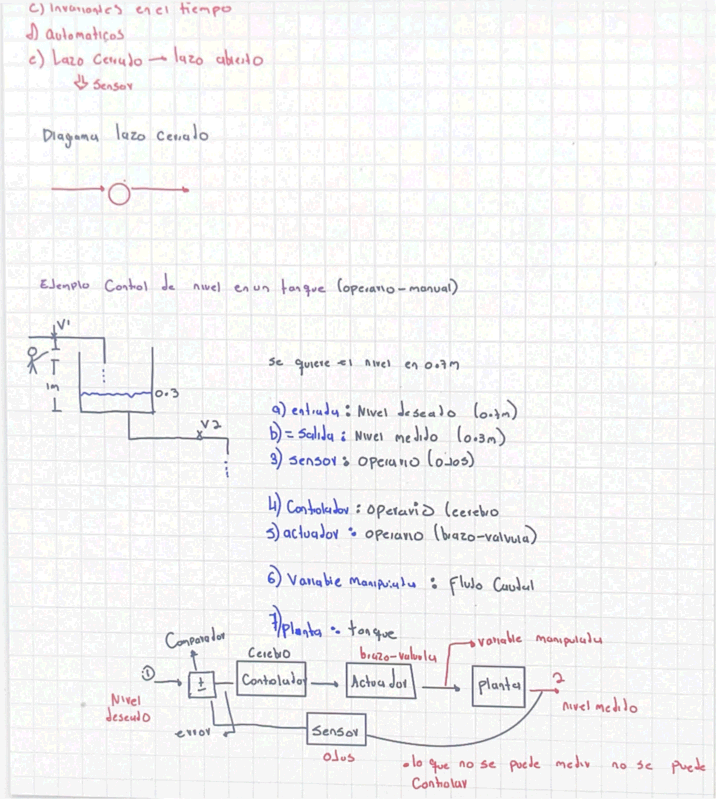 c) Invariantes en el tiempo
d) automaticos
e) Lazo Cerrado → lazo abierto
⇓ Sensor
Diagama lazo cerrado
Ejemplo Control de nivel en un tanque (operario-manual)
V1
1m
0.3
V2
Se quiere el nivel en 0.7m
a) entrada : Nivel deseado (0.7m)
b) = Salida : Nivel medido (0.3m)
3) sensor : operario (ojos)
4) Controlador : operario (cerebro
5) actuador : operario (brazo-valvula)
6) Variable manipulada : Flujo Caudal
7) planta : tanque
Comparador
Cerebro
brazo-valvula
variable manipulada
1
±
Contolador
Actuador
planta
2
Nivel deseado
nivel medido
error
Sensor
ojos
• lo que no se puede medir no se puede
Controlar